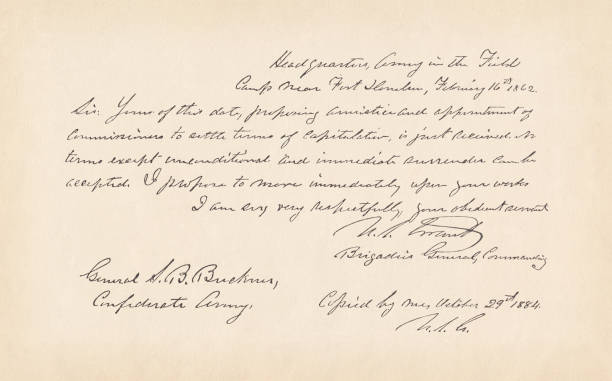 Headquarters, Army in the Field
Camp Near Fort Donelson, February 16th 1862
Sir: Yours of this date, proposing armistice and appointment of
Commissioners to settle terms of Capitulation, is just received. No
terms except unconditional and immediate surrender can be
accepted. I propose to move immediately upon your works
I am sir, very respectfully, your obedient servant
U. S. Grant
Brigadier General, Commanding
General S. B. Buckner,
Confederate Army.
Copied by me, October 29th 1884.
U. S. G.